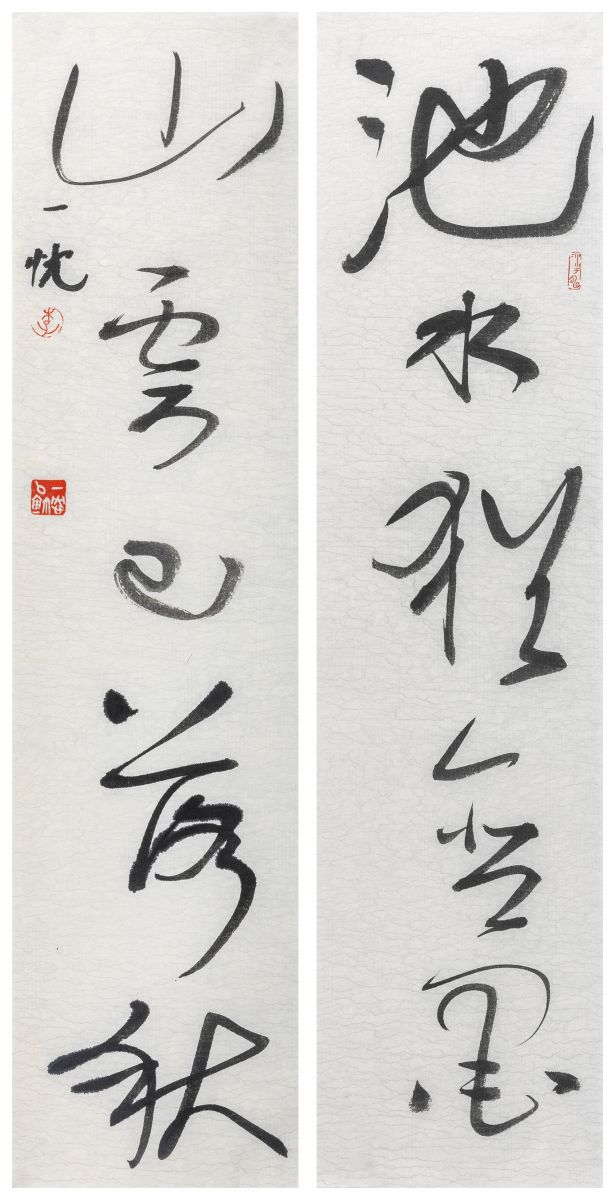 池水猶含墨
山雲已落秋
一忱
李